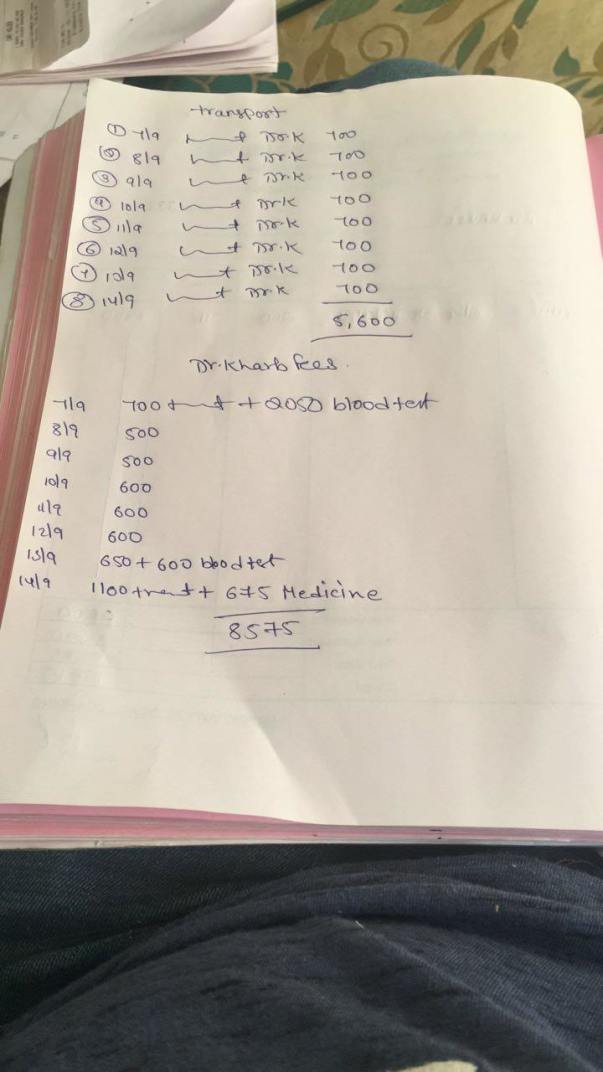 transport
① 7/9 Dr.K 700
② 8/9 Dr.K 700
③ 9/9 Dr.K 700
④ 10/9 Dr.K 700
⑤ 11/9 Dr.K 700
⑥ 12/9 Dr.K 700
⑦ 13/9 Dr.K 700
⑧ 14/9 Dr.K 700
5,600
Dr.Kharb fees.
7/9 700 + 2050 blood test
8/9 500
9/9 500
10/9 600
11/9 600
12/9 600
13/9 650 + 600 blood test
14/9 1100 + 675 Medicine
8575